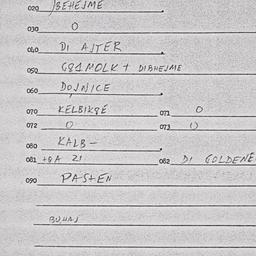 020 BEHEJME
030 O
040 DI AJTER
050 G81 MOLK + DIBHEJME
060 DOJNICE
070 KELBIKSÉ 071 O
072 O 073 O
080 KALB-
081 +8A 21 082 DI GOLDENE
090 PASTEN
BUHAJ